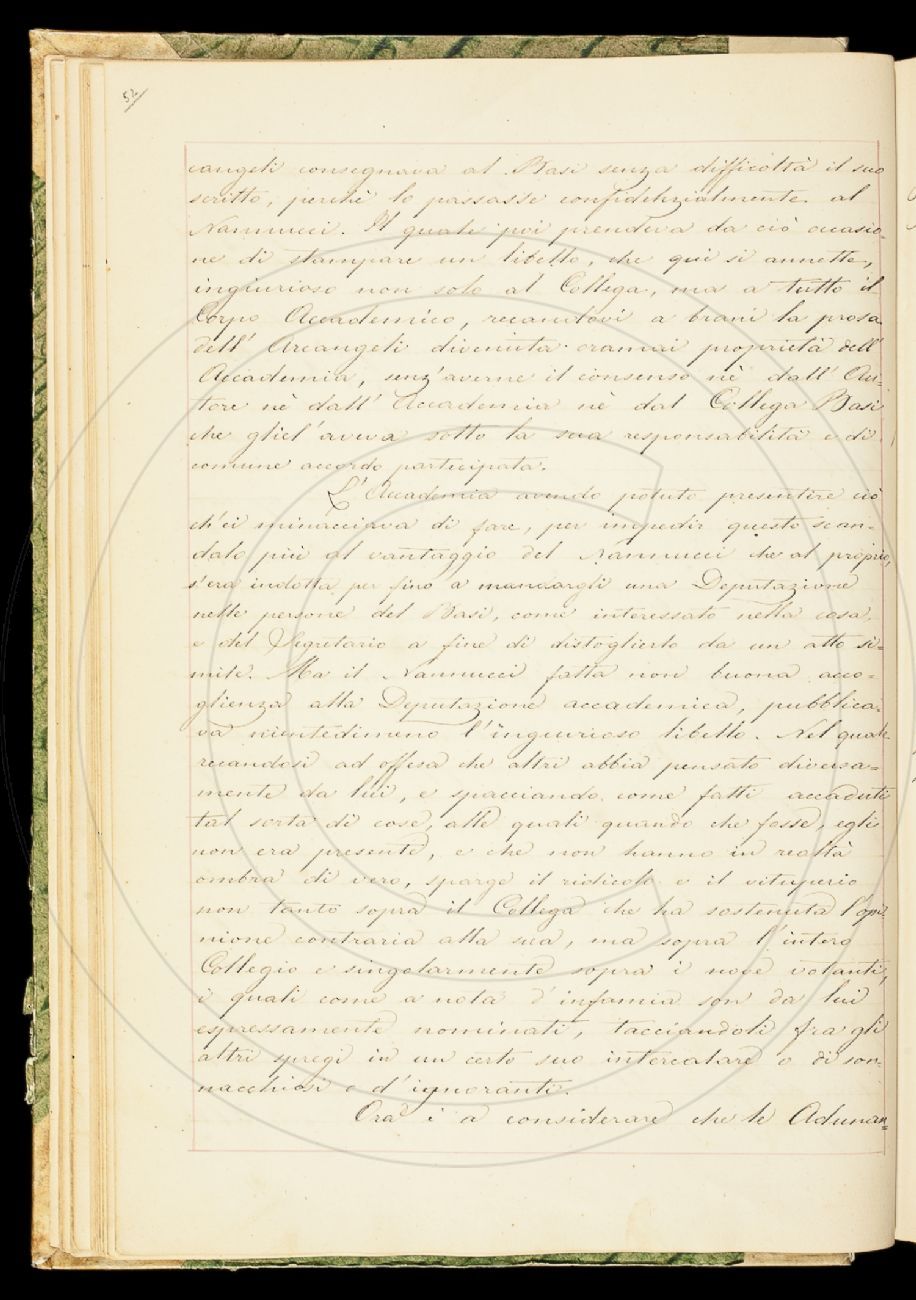 52
cangeli consegnava al Basi senza difficoltà il suo
scritto, perchè lo passasse confidenzialmente al
Nannucci. Il quale poi prendeva da ciò occasio=
ne di stampare un libello, che qui si annette,
ingiurioso non solo al Collega, ma a tutto il
Corpo Accademico, recandovi a brani la prosa
dell' Arcangeli divenuta oramai proprietà dell'
Accademia, senz'averne il consenso nè dall' Au=
tore nè dall' Accademia nè dal Collega Basi
che gliel'aveva sotto la sua responsabilità e di
comune accordo participata.
L'Accademia avendo potuto presentire ciò
ch'ei minacciava di fare, per impedir questo scan=
dalo più al vantaggio del Nannucci che al proprio,
s'era indotta per fino a mandargli una Deputazione
nelle persone del Basi, come interessato nella cosa,
e del Segretario a fine di distoglierlo da un atto si=
mile. Ma il Nannucci fatta non buona acco=
glienza alla Deputazione accademica, pubblica=
va nientedimeno l'ingiurioso libello. Nel quale
recandosi ad offesa che altri abbia pensato diversa=
mente da lui, e spacciando come fatti accaduti
tal sorta di cose, alle quali quando che fosse, egli
non era presente, e che non hanno in realtà
ombra di vero, sparge il ridicolo e il vituperio
non tanto sopra il Collega che ha sostenuta l'opi=
nione contraria alla sua, ma sopra l'intero
Collegio e singolarmente sopra i nove votanti,
i quali come a nota d'infamia son da lui
espressamente nominati, tacciandoli fra gli
altri spregi in un certo suo intercalare o di son=
nacchiosi o d'ignoranti.
Ora è a considerare che le Adunan=